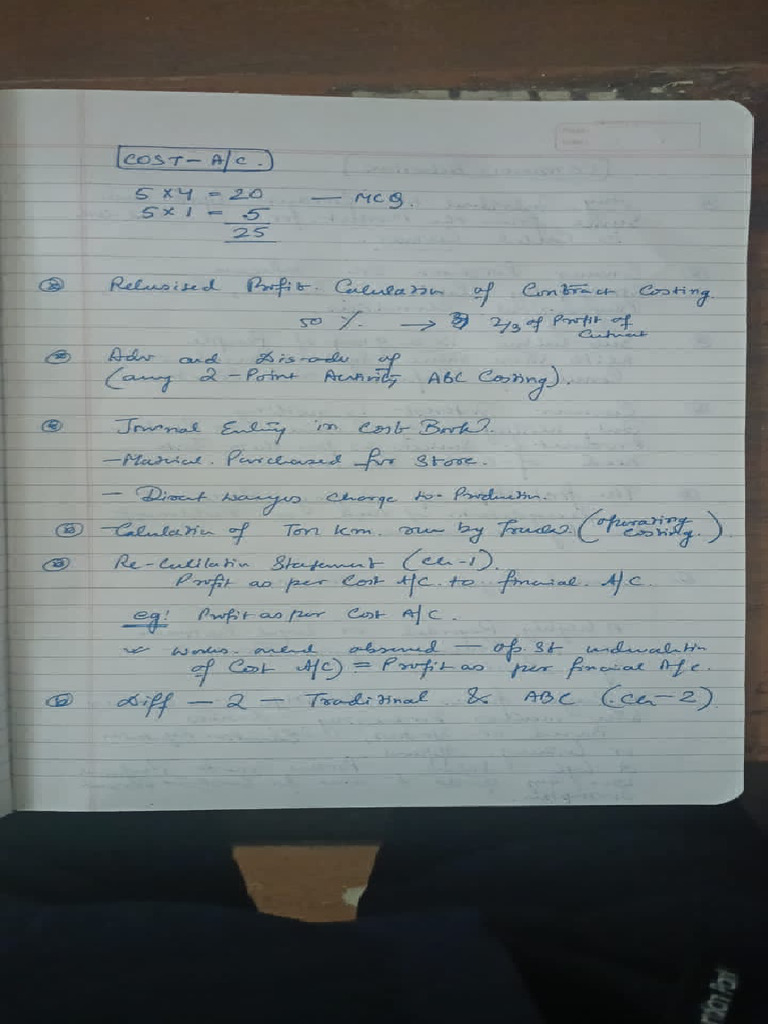 COST - A/C.
5 x 4 = 20 — MCQ.
5 x 1 = 5
25
Relusised Profit Calculation of Contract Costing.
50 % → 2/3 of Profit of
Cutract
Adv and Dis-adv of
(any 2 - Point Activity ABC Costing).
Journal Entiry in Cost Book?
- Matrial. Purchased for Store.
- Dirout wanges charge to Production.
- Calculation of Ton Km. run by Trucks. (operating
costing.)
Re-Cutilatin Statement (Ch-1).
Profit as per Cost A/C. to finacial A/C.
eg: Profit as per Cost A/C.
works observed — op. St undevalatin
of Cost A/C) = Profit as per finacial A/c.
Diff - 2 - Traditinal & ABC (Ch - 2)